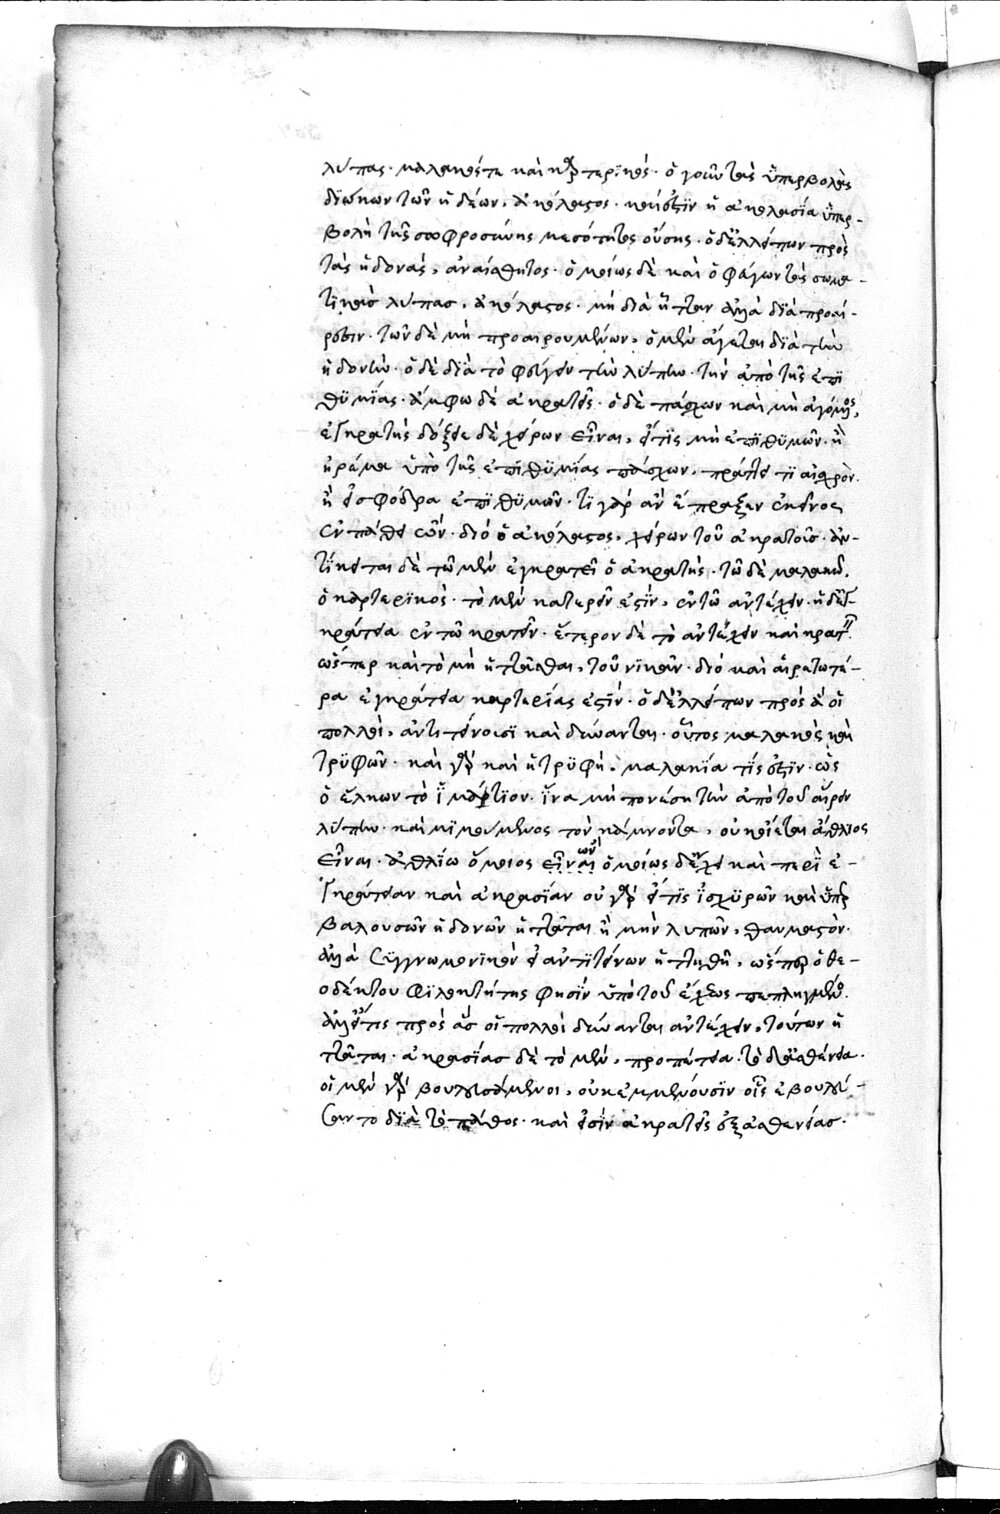 λύπας· μαλακός τε καὶ καρτερικός· ὁ γοῦν τὰς ὑπερβολὰς
διώκων τῶν ἡδέων, ἀκόλαστος· καί ἐστιν ἡ ἀκολασία ὑπερ-
βολὴ τῆς σωφροσύνης μεσότητος οὔσης· ὁ δ' ἐλλείπων πρὸς
τὰς ἡδονάς, ἀναίσθητος· ὁμοίως δὲ καὶ ὁ φεύγων τὰς σωμα-
τικὰς λύπας, ἀκόλαστος· μὴ διὰ ἧτταν ἀλλὰ διὰ προαί-
ρεσιν· τῶν δὲ μὴ προαιρουμένων, ὁ μὲν ἄγεται διὰ τὴν
ἡδονήν· ὁ δὲ διὰ τὸ φεύγειν τὴν λύπην τὴν ἀπὸ τῆς ἐπι
θυμίας· ἄμφω δὲ ἀκρατεῖς· ὁ δὲ πάσχων καὶ μὴ ἀγόμενος,
ἐγκρατὴς δόξει δὲ χείρων εἶναι, εἴ τις μὴ ἐπιθυμῶν· ἢ
ἠρέμα ὑπὸ τῆς ἐπιθυμίας πάσχων, πράττει τι αἰσχρὸν·
ἢ εἰ σφόδρα ἐπιθυμῶν· τί γὰρ ἂν ἔπραξεν ἐκεῖνος
ἐν πάθει ὤν· διὸ ὁ ἀκόλαστος, χείρων τοῦ ἀκρατοῦς· ἀν-
τίκειται δὲ τῶ μὲν ἐγκρατεῖ ὁ ἀκρατής· τῶ δὲ μαλακῶ,
ὁ καρτερικός· τὸ μὲν καρτερεῖν ἐστίν, ἐν τῶ ἀντέχειν· ἡ δ' ἐγ-
κράτεια ἐν τῶ κρατεῖν· ἕτερον δὲ τὸ ἀντέχειν καὶ κρατεῖν
ὥσπερ καὶ τὸ μὴ ἡττᾶσθαι, τοῦ νικᾶν· διὸ καὶ αἱρετωτέ-
ρα ἐγκράτεια καρτερίας ἐστίν· ὁ δ' ἐλλείπων πρὸς ἃ οἱ
πολλοὶ, ἀντιτείνουσι καὶ δύνανται· οὗτος μαλακὸς καὶ
τρυφῶν· καὶ γὰρ καὶ ἡ τρυφὴ, μαλακία τίς ἐστιν· ὡς
ὁ ἕλκων τὸ ἱμάτιον· ἵνα μὴ πονέση τὴν ἀπὸ τοῦ αἴρειν
λύπην· καὶ μιμούμενος τὸν κάμνοντα, οὐκ οἴεται ἄθλιος
εἶναι· ἀθλίω ὅμοιος ὤν· ὁμοίως δ' ἔχει καὶ περὶ ἐ-
γκράτειαν καὶ ἀκρασίαν οὐ γὰρ εἴ τις ἰσχυρῶν καὶ ὑπερ
βαλουσῶν ἡδονῶν ἡττᾶται ἢ μὴν λυπῶν, θαυμαστὸν·
ἀλλὰ συγγνωμονικὸν εἰ ἀντιτείνων ἡττηθῆ, ὥσπερ ὁ θε-
οδέκτου φιλοκτήτης φησὶν ὑπὸ τοῦ ἔχεως πεπληγμένος
ἀλλ' εἴ τις πρὸς ἃς οἱ πολλοὶ δύνανται ἀντέχειν, τούτων ἡ
ττᾶται· ἀκρασίας δὲ τὸ μὲν, προπέτεια· τὸ δ' ἀσθένεια·
οἱ μὲν γὰρ βουλευσάμενοι, οὐκ ἐμμένουσιν οἷς ἐβουλεύ-
σαντο διὰ τὸ πάθος· καὶ εἰσὶν ἀκρατεῖς ἐξ ἀσθενείας·